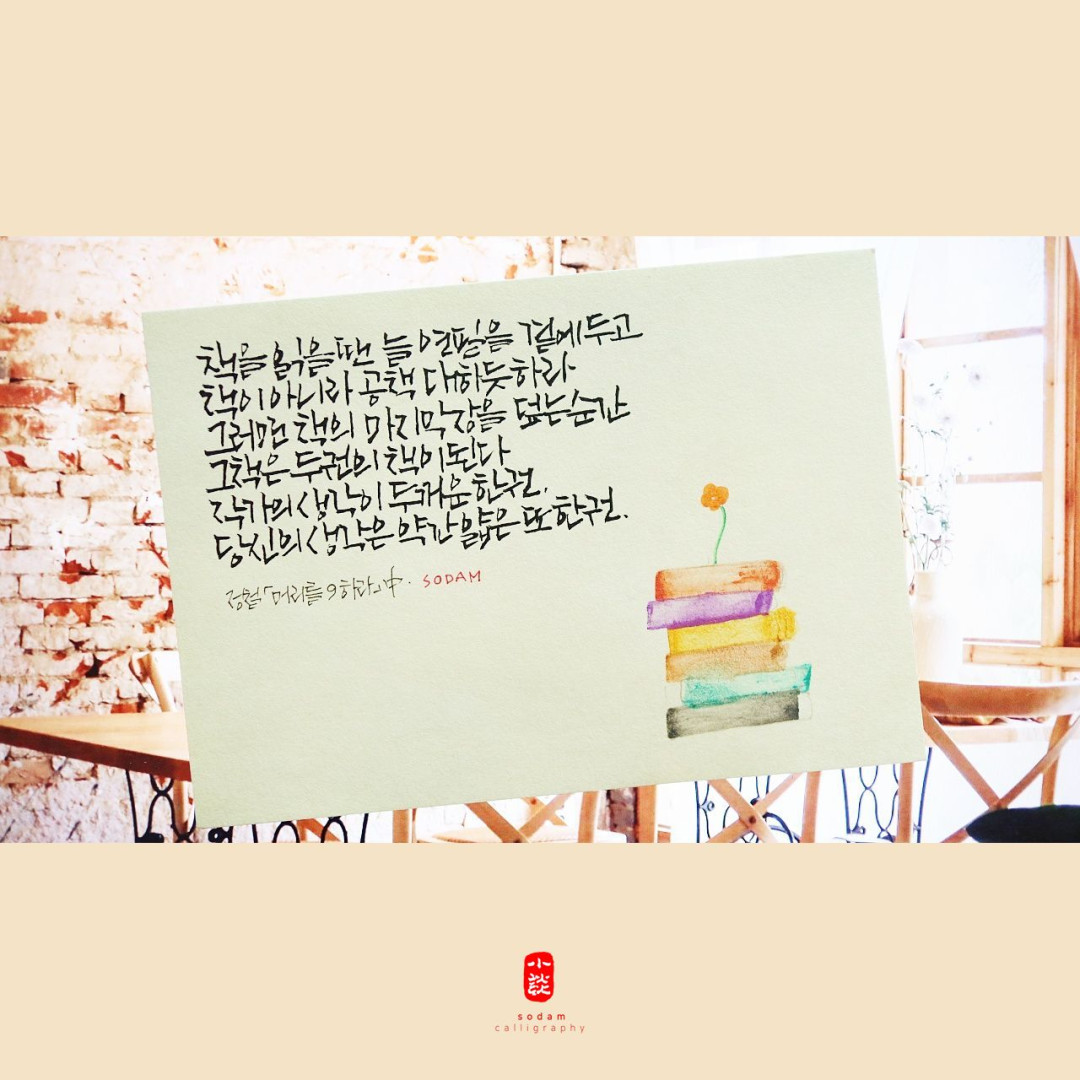 책을 읽을 땐 늘 연필을 곁에 두고
책이 아니라 공책 대하듯 하라
그러면 책의 마지막 장을 덮는 순간
그 책은 두 권의 책이 된다
작가의 생각이 두꺼운 한 권.
당신의 생각은 약간 얇은 또 한 권.
정철 「머리를 9하라」 中. SODAM
小談
sodam
calligraphy